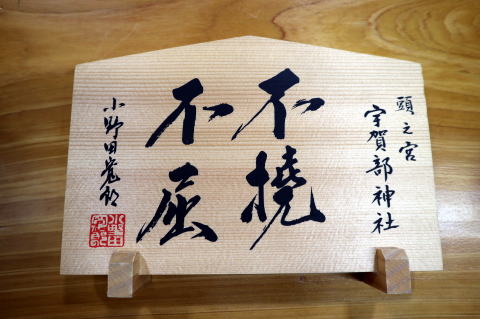 頭之宮
宇賀部神社
不撓
不屈
小野田寛郎